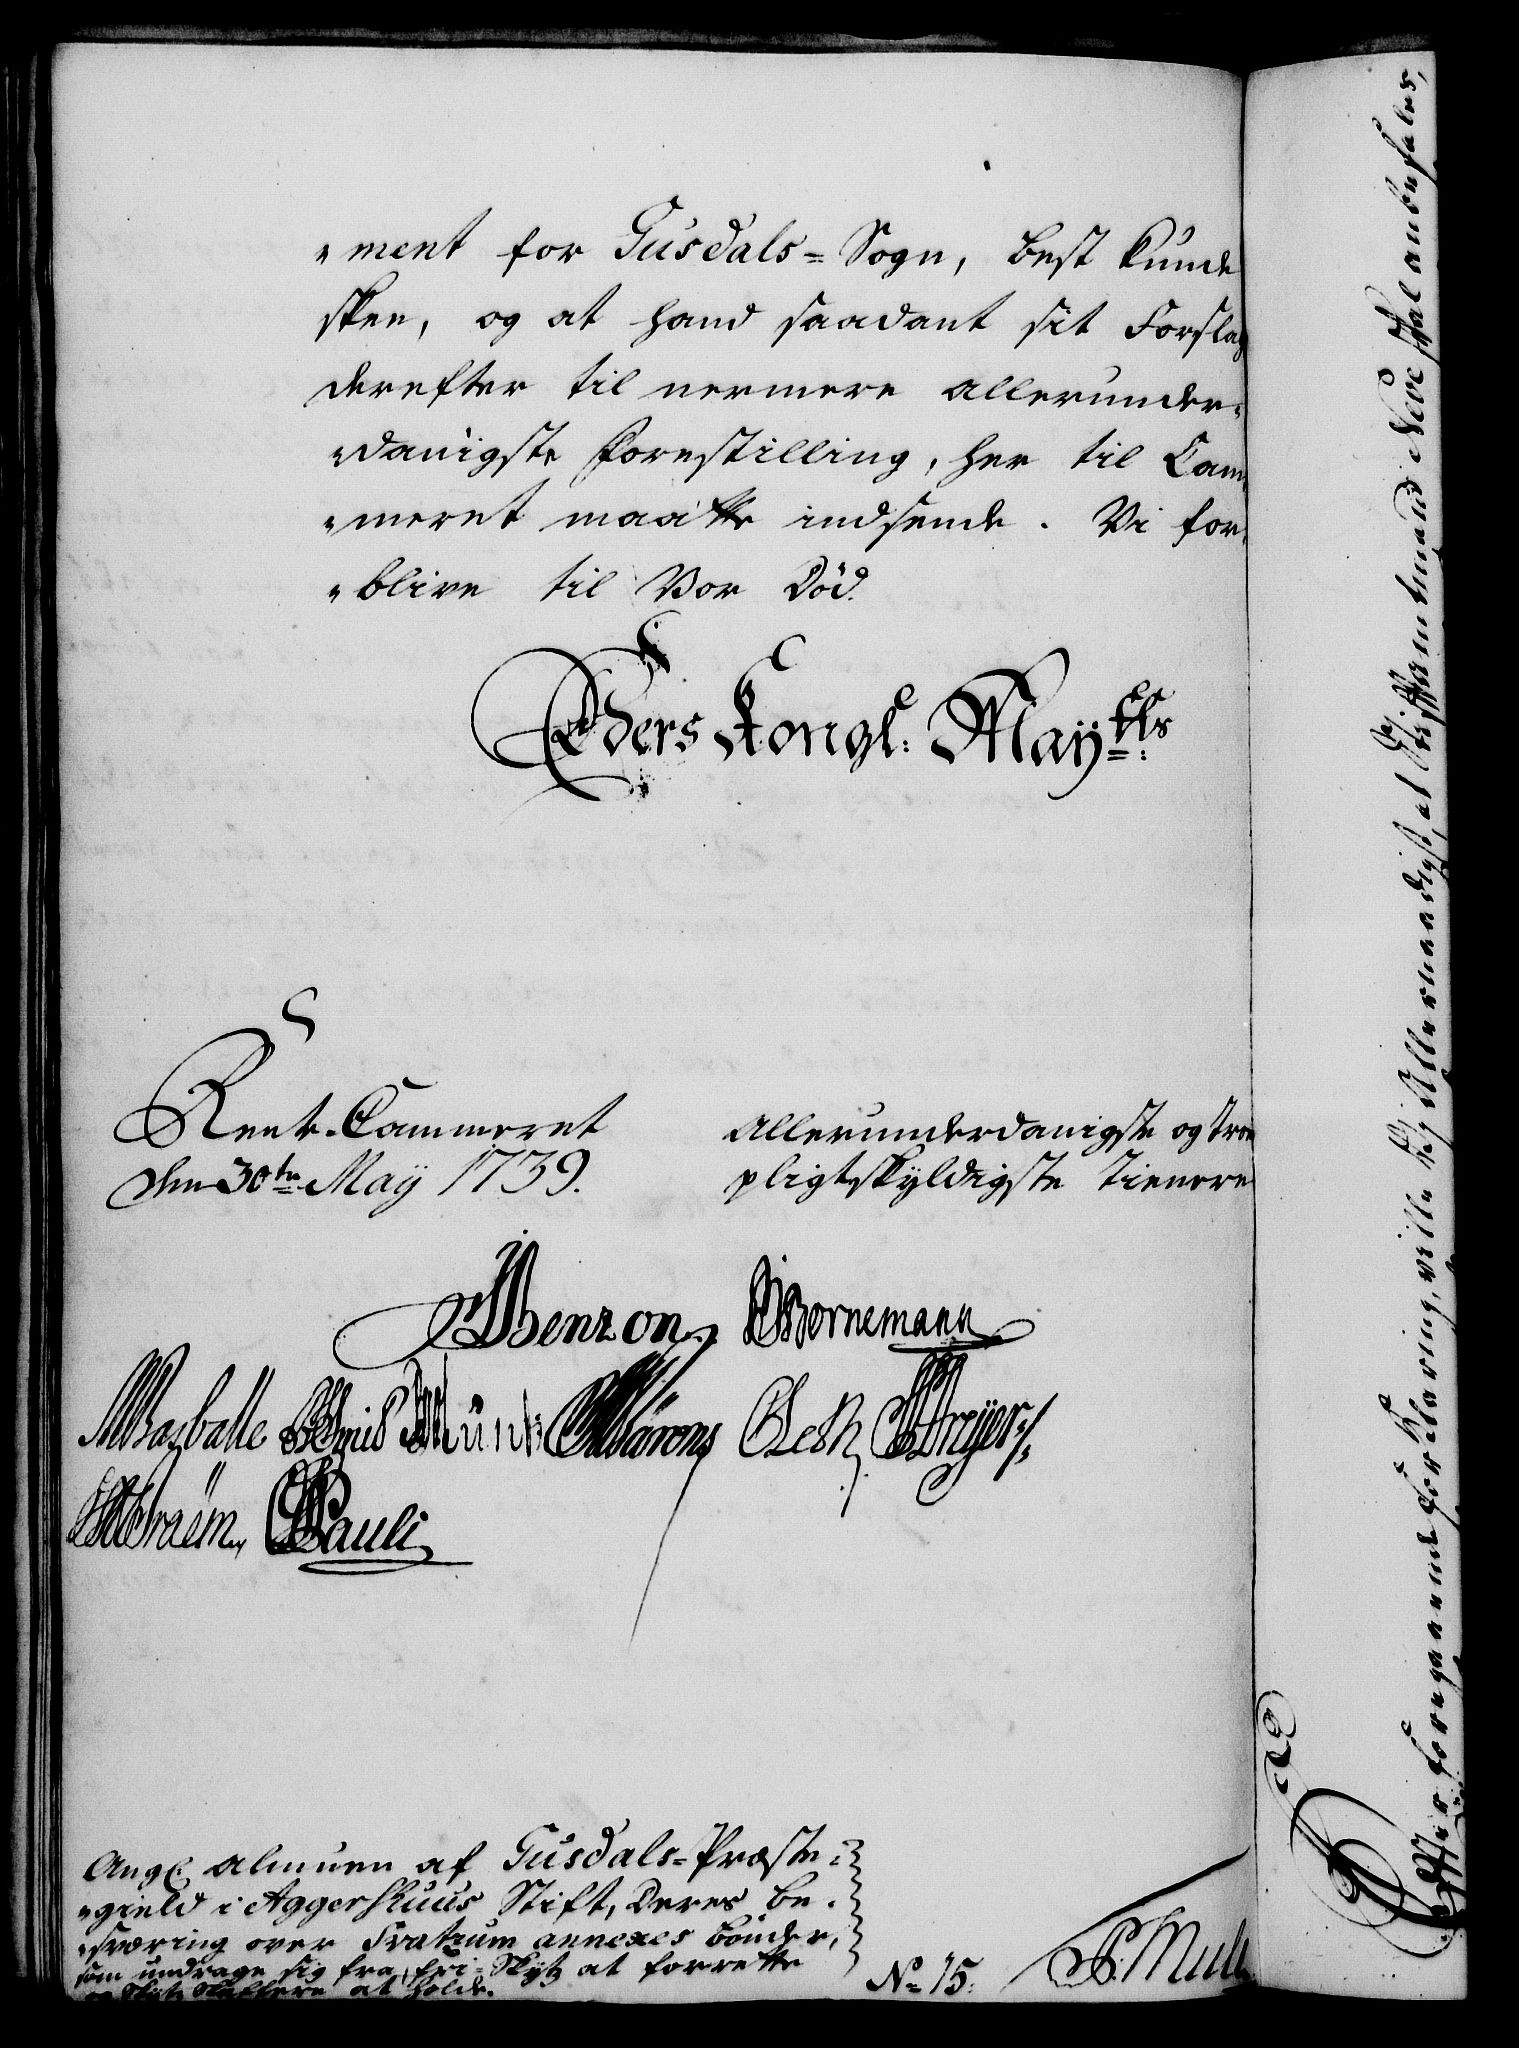 "ment for Tusdals= Sogn, best kunde
skee, og at hand saadant sit Forslag
derefter til nermere allerunder-
"danigste forestilling, her til Cam-
"meret maatte indsende. Vi for-
"blive til Vor Död.
Eders Kongl: Maÿtts
Rente-Cammeret
den 30te May 1739.
Allerunderdanigste og troe
pligtskyldigste Tienere
Benzon Bornemann
Basballe Münk Esch Dreyer
Braëm Pauli
Angl. Almuen af Tusdals-Præste-
"gield i Aggershuus Stift, Deres be-
"sværing over Fratrum annexes bönder,
som undrage sig fra fri-Skytz at forrette
og Skytz skaffere at holde.
No 15.
Efter foregaaende forklaring, ville Vj Allernaadigst, at Stiftamtmand Neve skal anbefales,